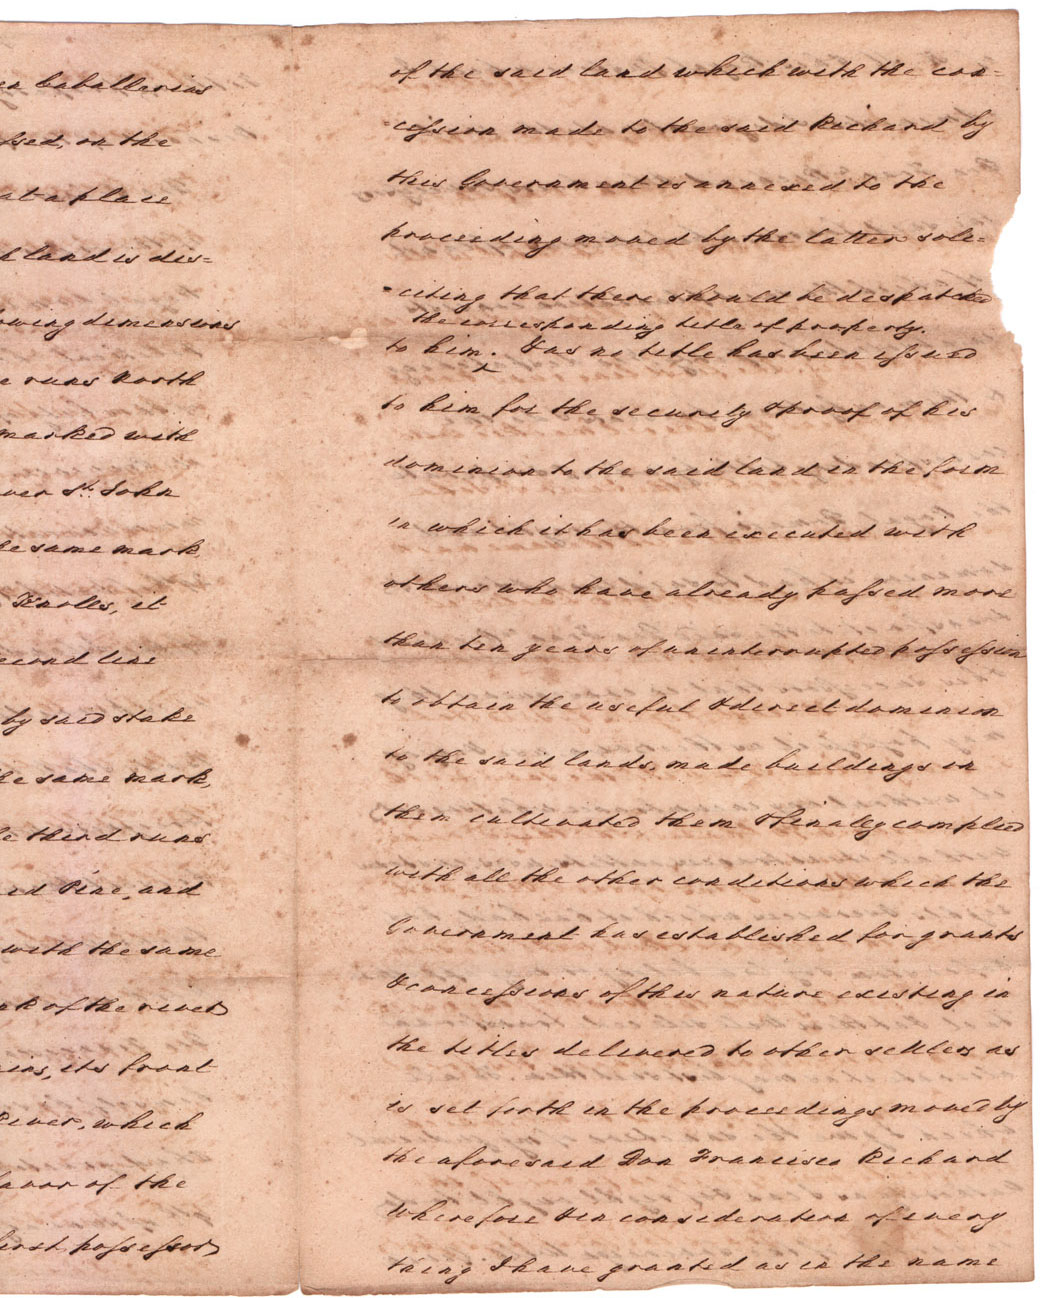 en Caballerias
ssed, on the
at a place
d land is dis=
owing dimensions
e runs North
marked with
ver St. John
he same mark
Knolls, it
econd line
by said stake
he same mark,
e third runs
ed Pine, and
with the same
nk of the river
ins, its front
River, which
avor of the
first possessor
of the said land which with the con-
-cession made to the said Richard by
this Government is annexed to the
proceeding moved by the latter soli-
-citing that there should be despatched
the corresponding title of property.
to him. ^ & as no title has been issued
to him for the security & proof of his
dominion to the said land in the form
in which it has been executed with
others who have already passed more
than ten years of uninterrupted possession
to obtain the useful & direct dominion
to the said lands, made buildings in
them cultivated them & finally complied
with all the other conditions which the
Government has established for grants
& concessions of this nature existing in
the titles delivered to other settlers as
is set forth in the proceedings moved by
the aforesaid Don Francisco Richard
Wherefore & in consideration of every
thing I have granted as in the name